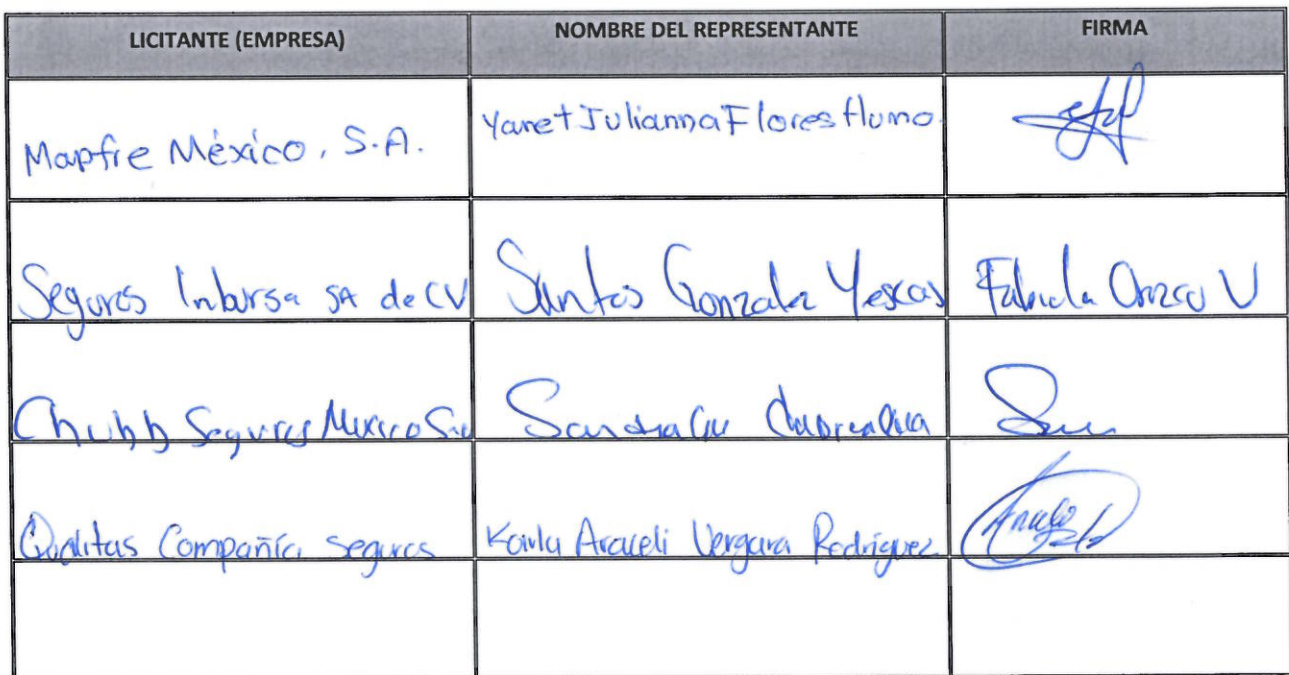 LICITANTE (EMPRESA) NOMBRE DEL REPRESENTANTE FIRMA
Mapfre México, S.A. Yanet Julianna Flores
Seguros Inbursa SA de CV Santos Gonzalez Yescas Fabiola Orozco V
Chubb Seguros Mexico Sandra
Qualitas Compañía seguros Karla Araceli Vergara Rodríguez